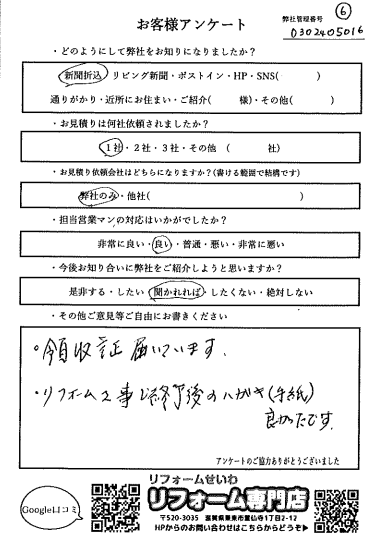 ⑥
お客様アンケート
弊社管理番号
0302405016
・どのようにして弊社をお知りになりましたか？
新聞折込・リビング新聞・ポストイン・HP・SNS(　　　)
通りがかり・近所にお住まい・ご紹介(　　　様)・その他(　　　)
・お見積りは何社依頼されましたか？
1社・2社・3社・その他　(　　　社)
・お見積り依頼会社はどちらになりますか？(書ける範囲で結構です)
弊社のみ・他社(　　　)
・担当営業マンの対応はいかがでしたか？
非常に良い・良い・普通・悪い・非常に悪い
・今後お知り合いに弊社をご紹介しようと思いますか？
是非する・したい・聞かれれば・したくない・絶対しない
・その他ご意見等ご自由にお書きください
・領収証届いています.
・リフォーム工事終了後のハガキ(手紙)
良かったです.
アンケートのご協力ありがとうございました
Google口コミ
リフォームせいわ
リフォーム専門店
〒520-3035　滋賀県栗東市霊仙寺1丁目2-12
HPからのお問い合わせはこちらからどうぞ